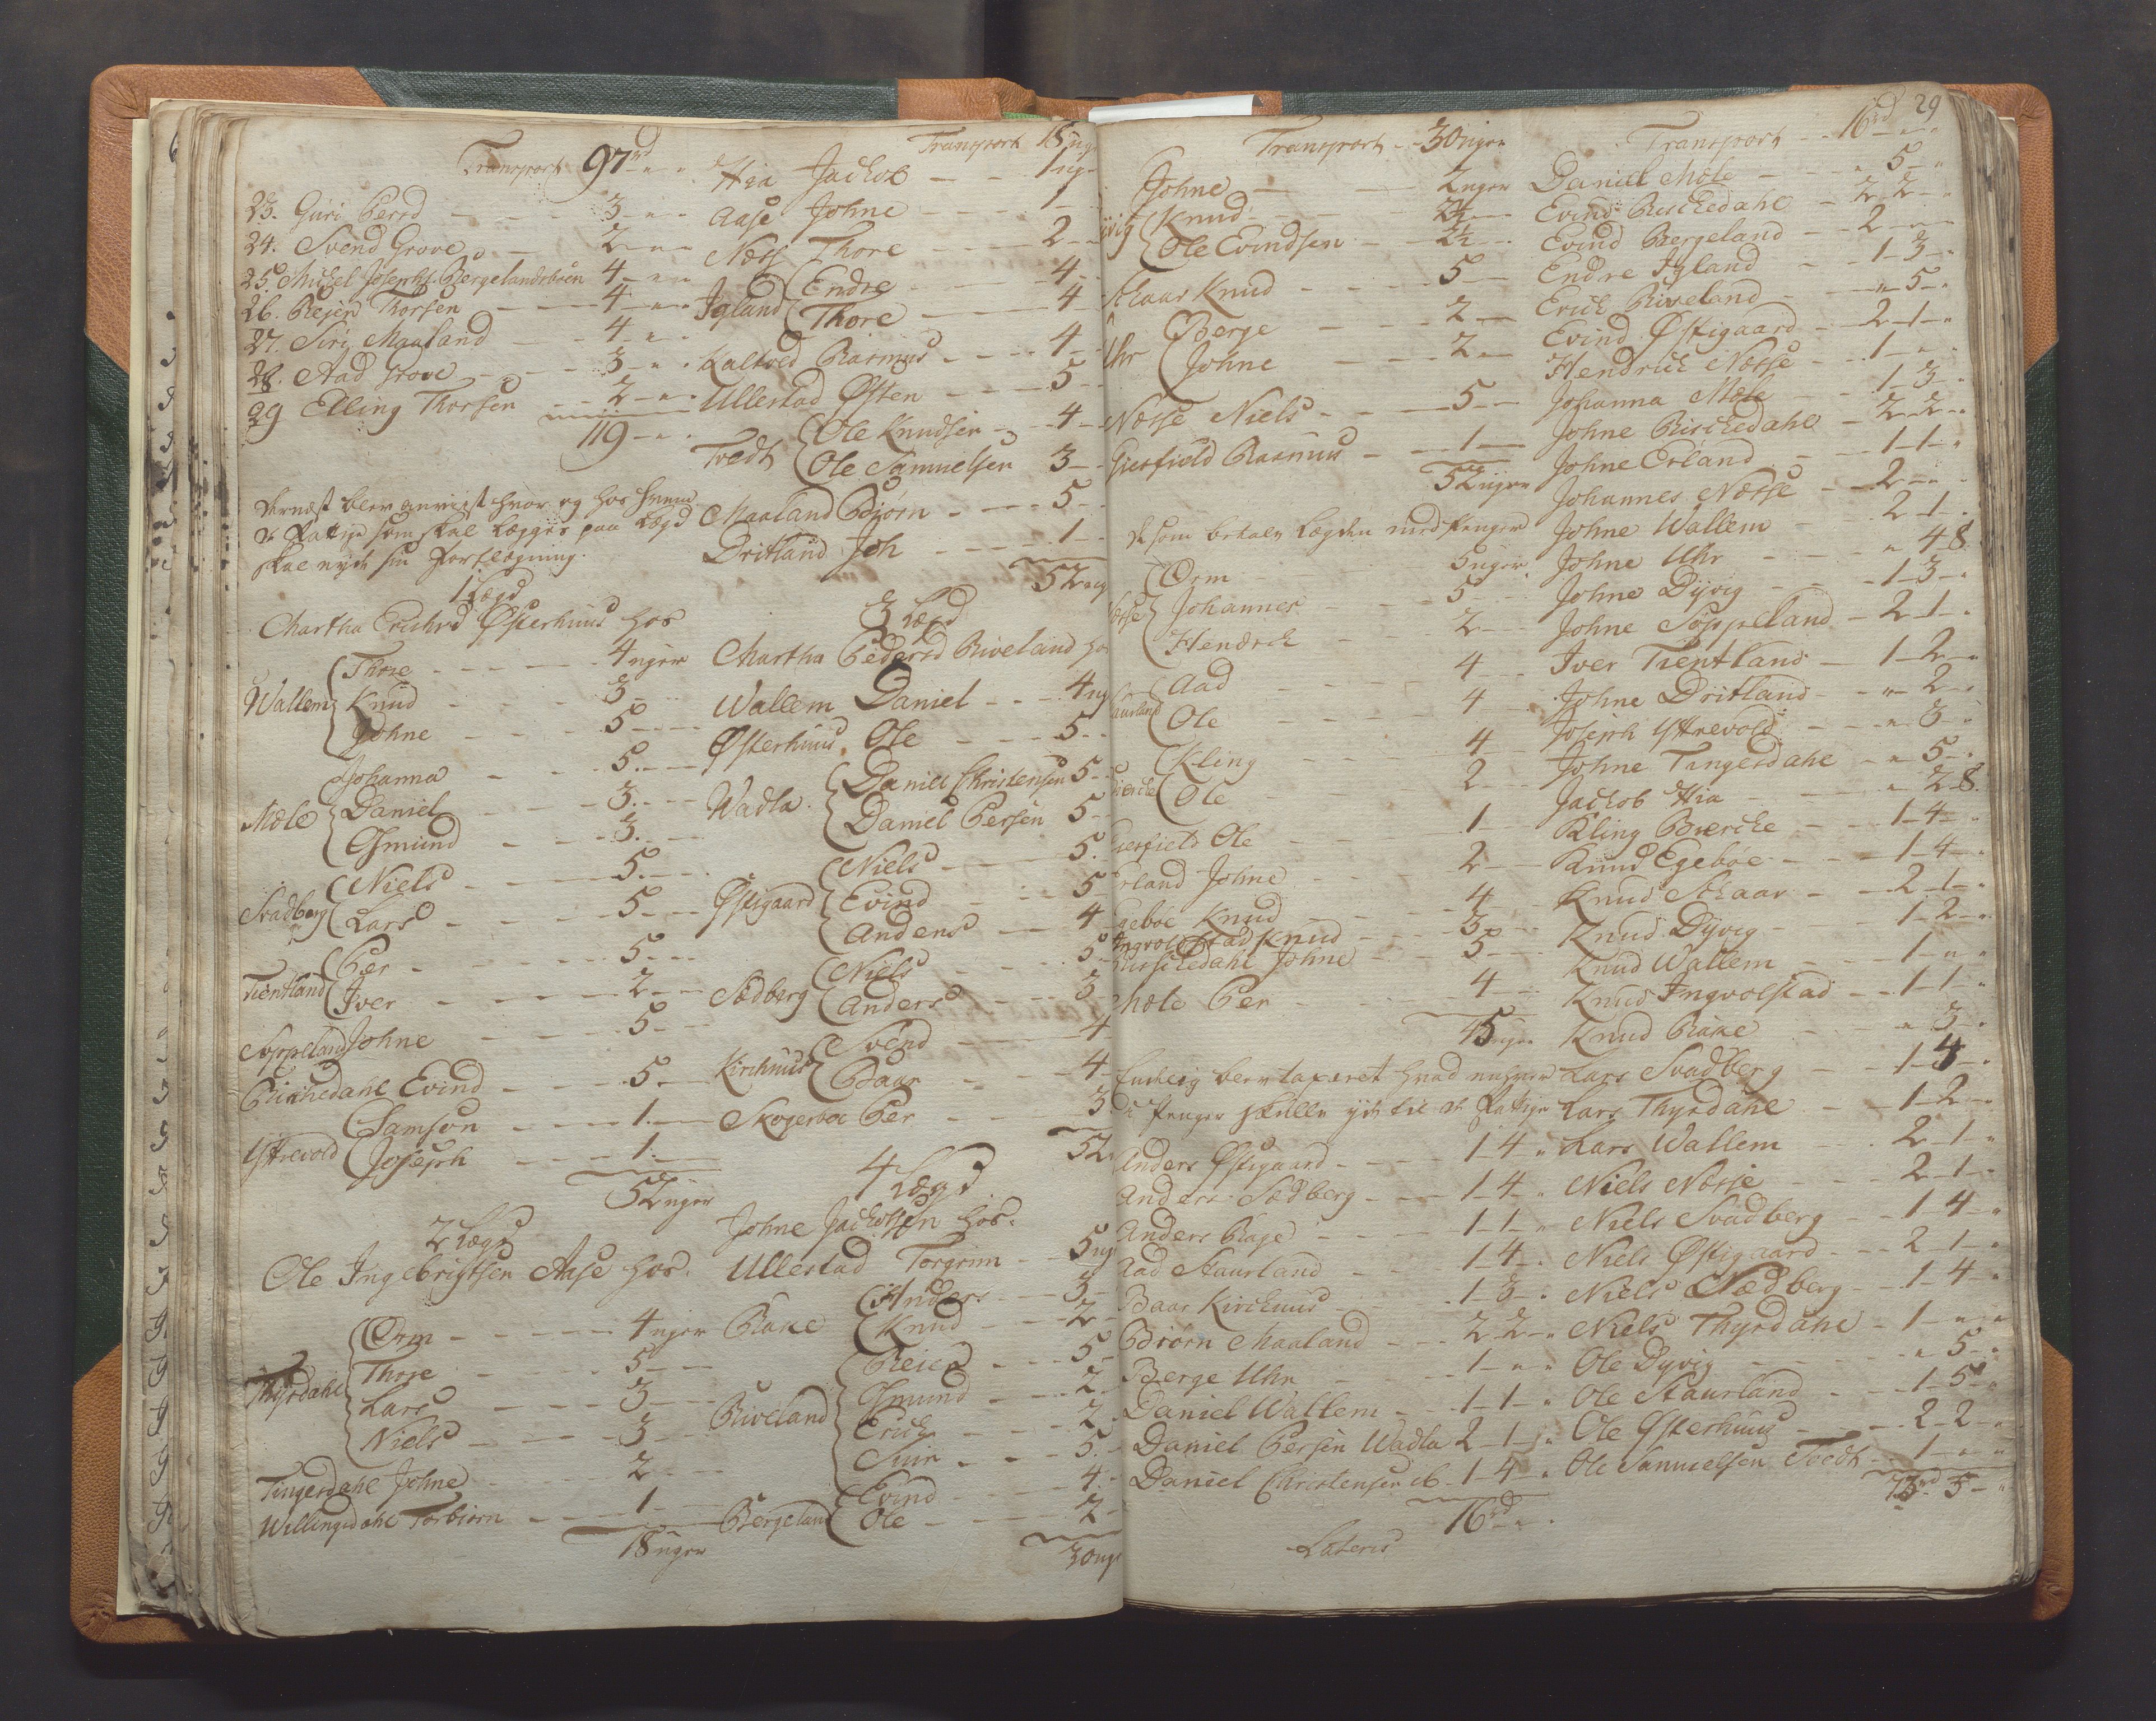 Transport 97rd
23. Guri Persd - 3
24. Svend Grove - 2
25. Michel Josephs. Bergelandsbien 4
26. Rejer Thorsen - 4
27. Siri Maaland - 4
28. Aad Grove - 3
29 Elling Thorsen - 2
119
dernest blev anviist hvor og hos hvem
de Fattige som skal legges paa Legd
skal nyde sin Forflegning.
1 Legd
Martha Erichsd Østerhuus hos
Wallem
Thore - 4 uger
Knud - 3
Johne - 5
Mæle
Johanna - 5
Daniel - 3
Osmund - 3
Svadberg
Niels - 5
Lars - 5
Tientland
Per - 5
Iver - 2
Soppeland Johne - 5
Rischedahl Evind - 5
Ystrevold
Samson - 1
Joseph - 1
52 uger
2 Legd
Ole Ingebrigtsen Aase hos
Thysdahl
Orm - 4 uger
Thore - 5
Lars - 3
Niels - 3
Tingesdahl Johne - 2
Willingsdahl Torbiørn - 1
18 uger
Transport 18 uger
Hia Jachob - 1 ug
Aase Johne - 1
Næss Thore - 2
Igland
Endre - 4
Thore - 4
Kaltved Rasmus - 4
Ullestad Østen - 5
Tvedt
Ole Knudsen - 4
Ole Samuelsen 3
Maaland Biørn - 5
Dritland Joh - 1
52 ug
3 Legd
Martha Pedersd Riveland hos
Wallem Daniel - 4 ug
Østerhuus Ole - 5
Wadla
Daniel Christensen 5
Daniel Persen 5
Østigaard
Niels - 5
Evind - 5
Anders - 4
Sædberg
Niels - 5
Anders - 3
Kirchuus
Svend - 4
Baar - 4
Skogerboe Per - 3
52
4 Legd
Johne Jachobsen hos.
Ullestad Torgrim - 5 ug
Rake
Anders - 3
Knud - 2
Riveland
Reier - 5
Osmund - 2
Erich - 2
Siur - 5
Bergeland
Evind - 4
Ole - 2
30 ug
Transport - 30 uger
Johne - 2 uger
Knud - 2½
Ole Evindsen - 2½
Staar Knud - 5
Uhr
Berge - 2
Johne - 2
Næsse Niels - 5
Gierfield Rasmus - 1
52 uger
de som betale Legden med Penger
Orm - 5 uger
Johannes - 5
Hendrich - 2
Aad - 4
Ole - 4
Kling - 4
Ole - 2
Gierfield Ole - 1
Erland Johne - 2
Egeboe Knud - 4
Ingvolstad Knud - 3
Rischedahl Johne - 5
Mæle Per - 4
45 uger
Endelig blev taxeret hvad enhver
i Penger skulle yde til de Fattige
Anders Østigaard - 1-4
Anders Sædberg - 1-4
Anders Rage - 1-1
Aad Staurland - 1-4
Baar Kirchuus - 1-3
Biørn Maaland - 2-2
Berge Uhr - 1
Daniel Wallem - 1-1
Daniel Persen Wadla 2-1
Daniel Christensen ib. 1-4
16rd
Lateris
29
Transport - 16rd
Daniel Mæle - 5
Evind Rischedahl - 2-2
Evind Bergeland - 2
Endre Igland - 1-3
Erich Riveland - 5
Evind Østigaard - 2-1
Hendrich Næsse - 1
Johanna Mæle - 1-3
Johne Rischedahl - 2-2
Johne Erland - 1-1
Johannes Næsse - 2
Johne Wallem - 2-1
Johne Uhr - 4-8
Johne Dyvig - 1-3
Johne Soppeland - 2-1
Iver Tientland - 1-2
Johne Dritland - 2
Joseph Ystrevold - 3
Johne Tingesdahl - 5
Jachob Hia - 2-8
Kling Biercke - 1-4
Knud Egeboe - 1-4
Knud Staar - 2-1
Knud Dyvig - 1-2
Knud Wallem - 1
Knud Ingvolstad - 1-1
Knud Rake - 3
Lars Svadberg - 1-4
Lars Thysdahl - 1-2
Lars Wallem - 2-1
Niels Næsse - 2-1
Niels Svadberg - 1-4
Niels Østigaard - 2-1
Niels Sædberg - 1-4
Niels Thysdahl - 1
Ole Dyvig - 5
Ole Staurland - 1-5
Ole Østerhuus - 2-2
Ole Samuelsen Tvedt - 1
73rd 5